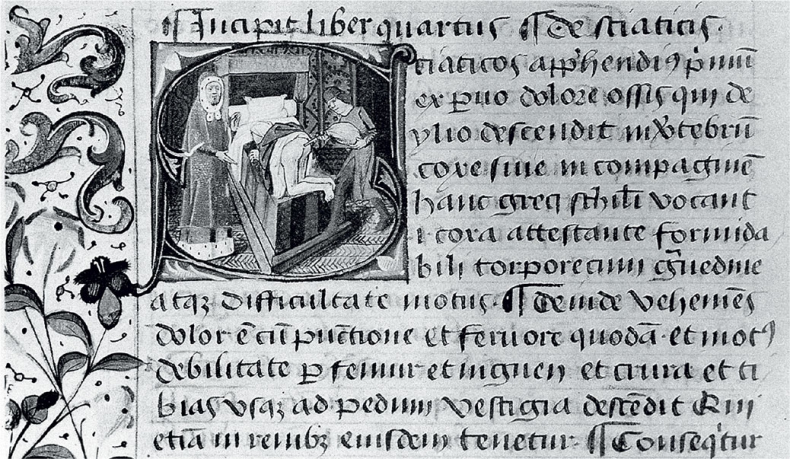 ¶ Incipit liber quartus ¶ De sciaticis
ciaticos app̄hendiꝰ p̄miū
ex p̄uo dolore ossis qui de
ylio descendit in
coxe siue in compaginē
hanc greci vocant
coxa attestante formida
bili torpore cum
atqꝫ difficultate motus ¶ Deinde vehemēs
dolor ē cū punctione et feruore quodā et motꝰ
debilitate ꝑ femur et inguen et crura et ti
bias vsqꝫ ad pedum vestigia descēdit Qui
etiā in renibꝫ eiusdem tenetur ¶ Conseq̄tur